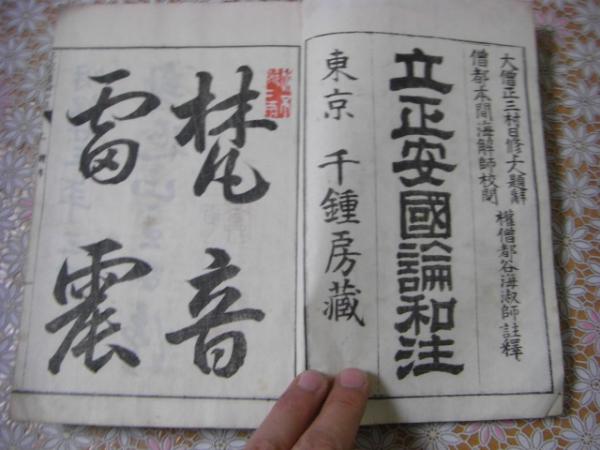 大僧正三村日修大題辭
僧都本間海解師校閲
權僧都谷海淑師註釋
立正安國論和注
東京 千鍾房藏
梵音
雷震